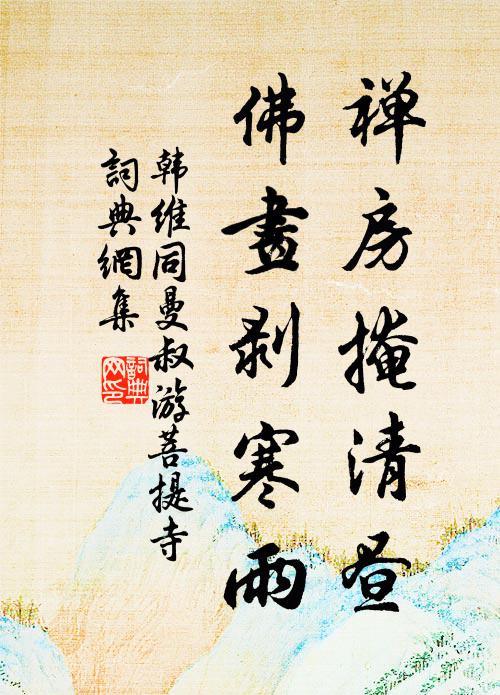 禅房掩清昼
佛畫剥寒雨
韩维同曼叔游菩提寺
詞典網集
詞典网印